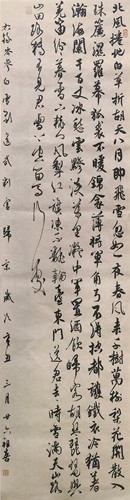 北風捲地白草折胡天八月即飛雪忽如一夜春風來千樹萬樹梨花開散入
珠簾濕羅幕狐裘不暖錦衾薄將軍角弓不得控都護鐵衣冷猶著
瀚海闌干百丈冰愁雲慘淡萬里凝中軍置酒飲歸客胡琴琵琶與
羌笛紛紛暮雪下轅門風掣紅旗凍不翻輪臺東門送君去去時雪滿天山路
山迴路轉不見君雪上空留馬行處
岑參白雪歌送武判官歸京歲次辛丑三月廿六